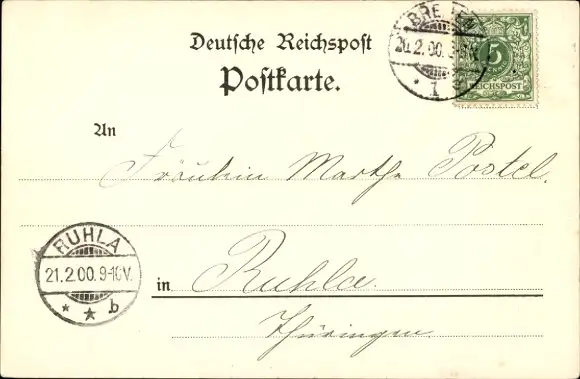 Deutsche Reichspost
Postkarte.
5
REICHSPOST
An
Fräulein Marthe Postel.
RUHLA
21.2.00.9-10V.
* * b
in Ruhla.
Thüringen.